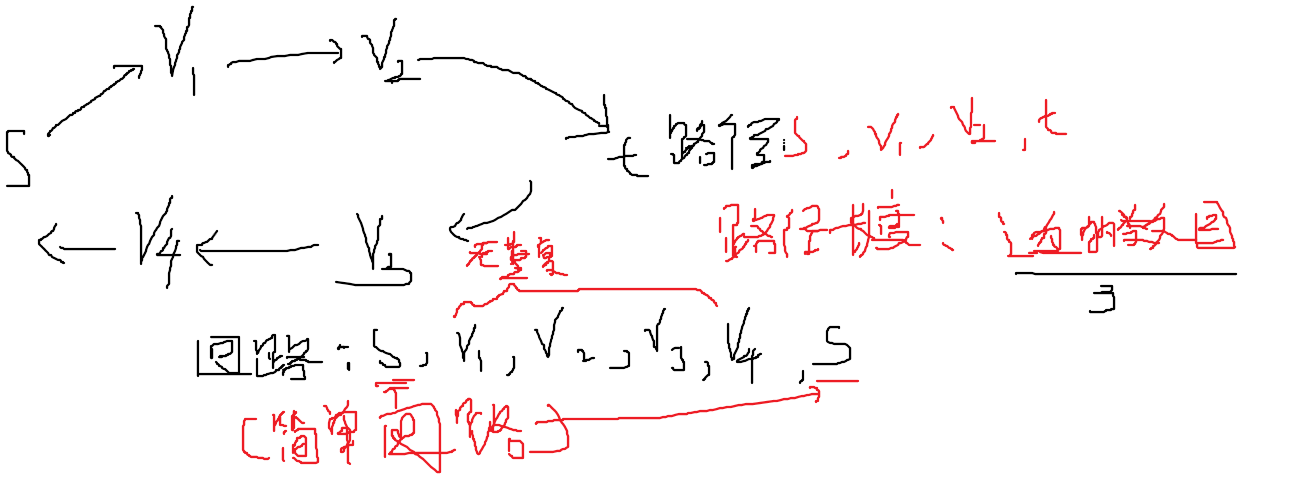 V1 V2
S
t 路径:S,V1,V2,t
V4 V3
路径长度:边的数目
3
无重复
回路:S,V1,V2,V3,V4,S
(简单回路)